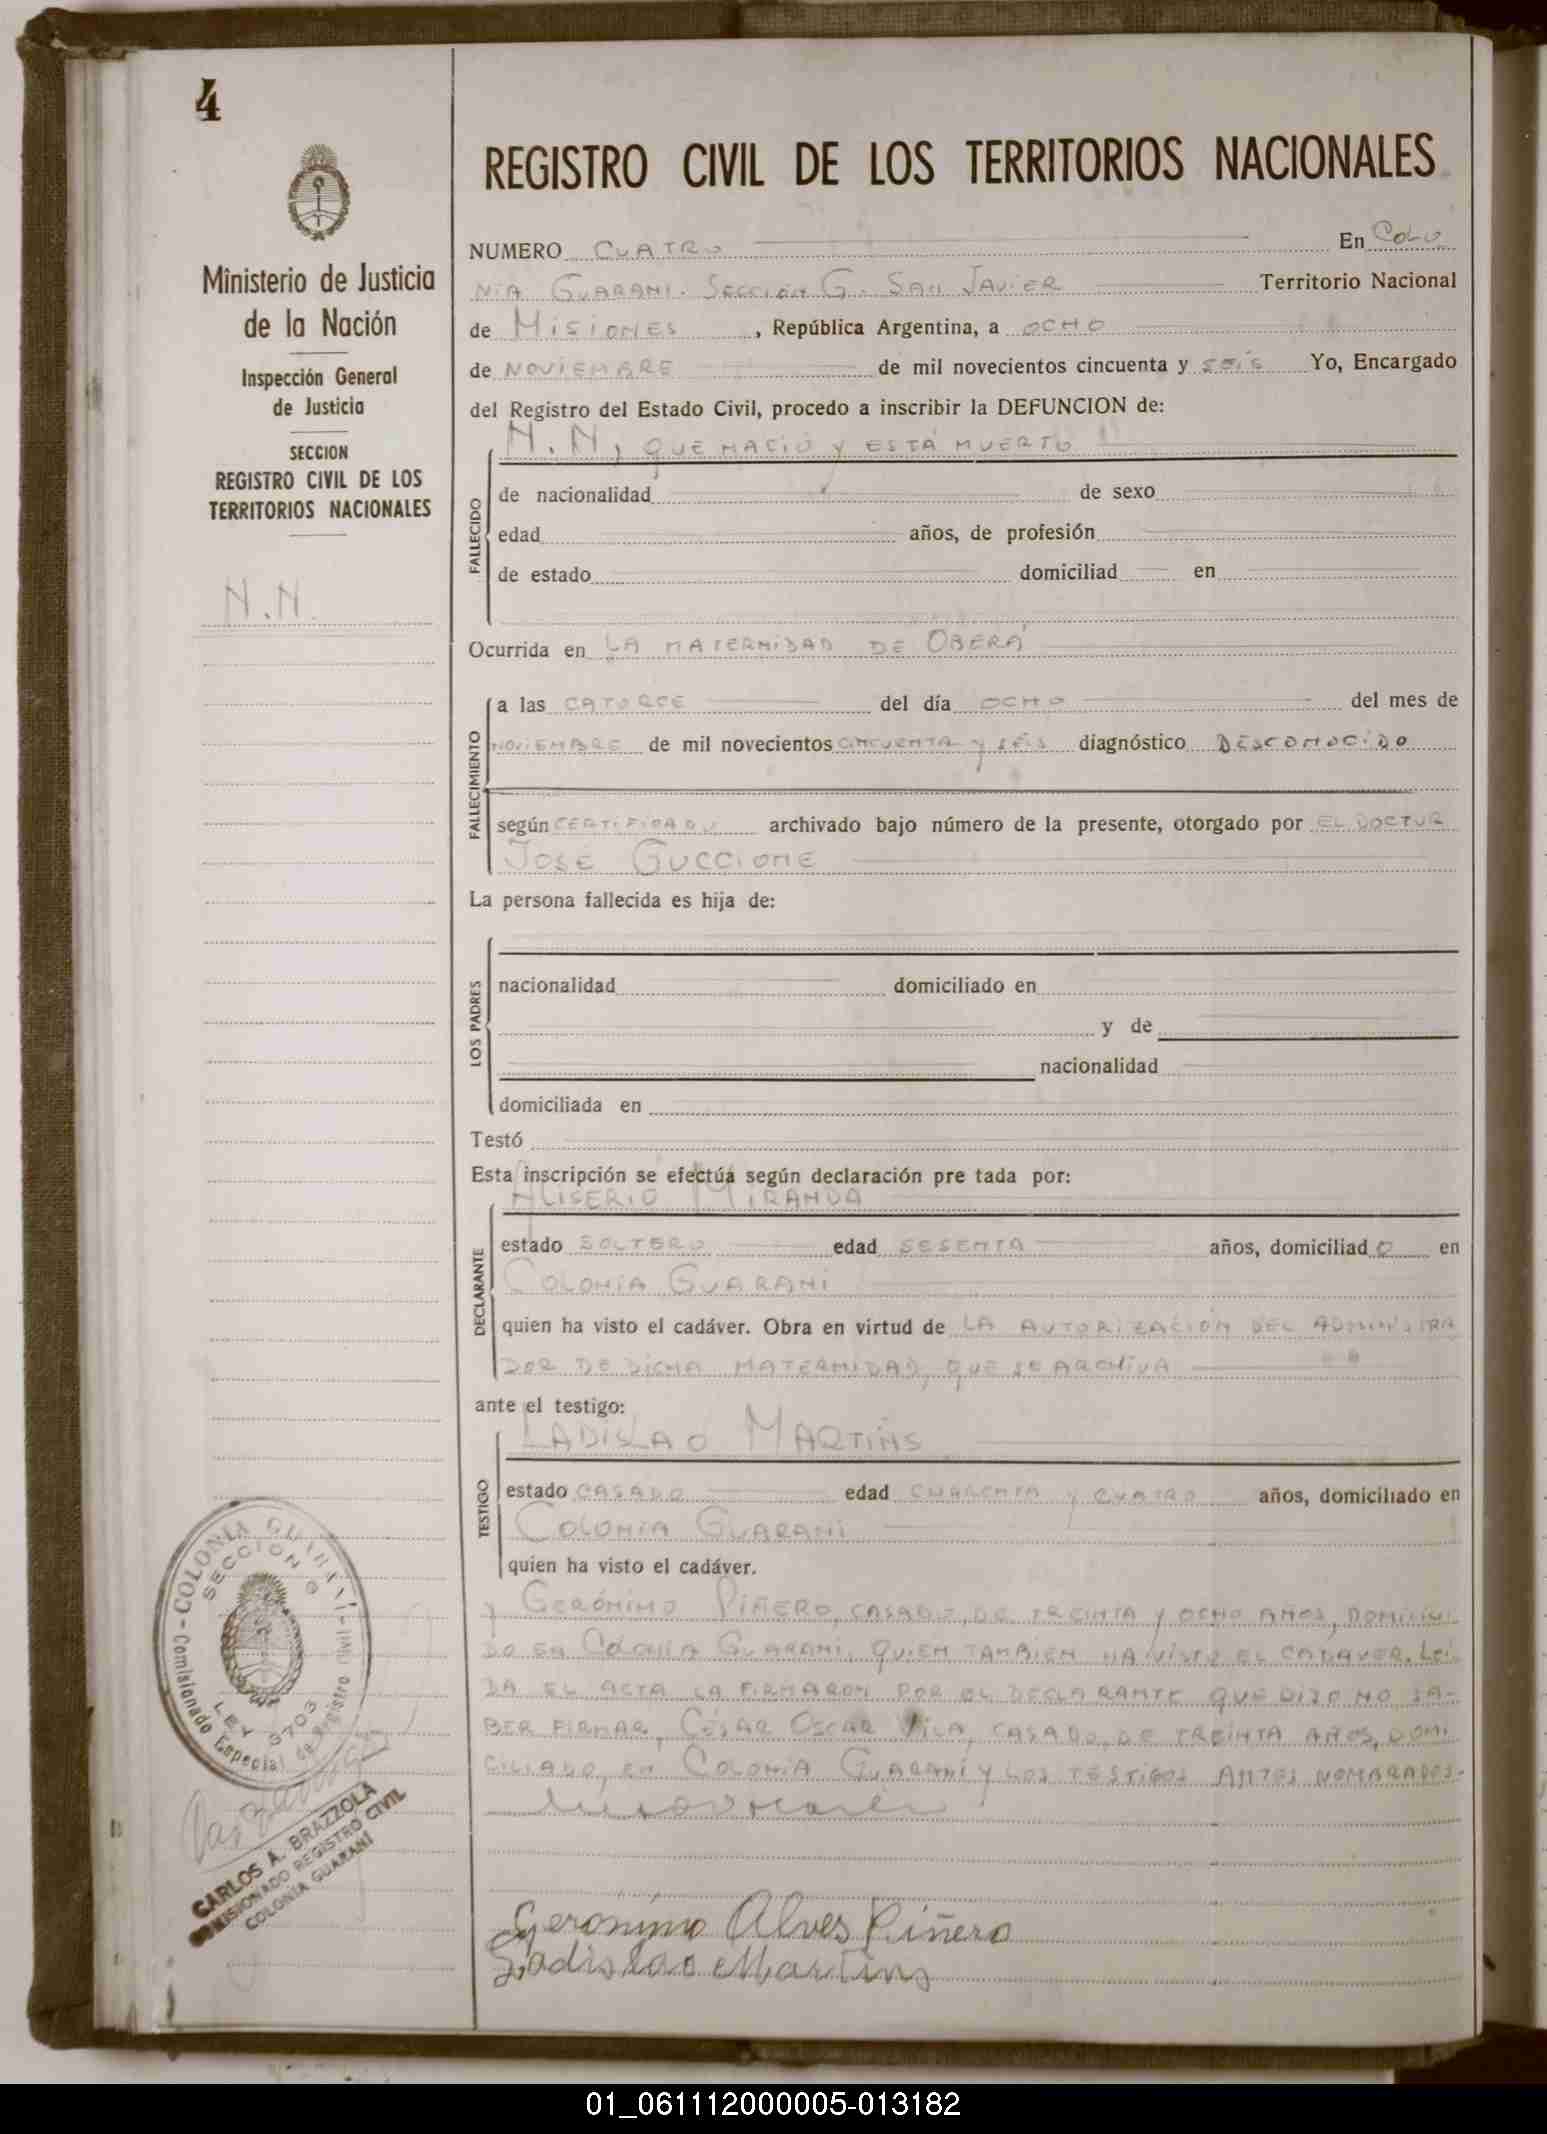 4
Ministerio de Justicia
de la Nación
Inspección General
de Justicia
SECCION
REGISTRO CIVIL DE LOS
TERRITORIOS NACIONALES
N.N.
REGISTRO CIVIL DE LOS TERRITORIOS NACIONALES
NUMERO CUATRO En COLO
NIA GUARANI. SECCIÓN G. SAN JAVIER Territorio Nacional
de MISIONES, República Argentina, a OCHO
de NOVIEMBRE de mil novecientos cincuenta y SEIS Yo, Encargado
del Registro del Estado Civil, procedo a inscribir la DEFUNCION de:
N.N, QUE NACIÓ y ESTÁ MUERTO
FALLECIDO
de nacionalidad de sexo
edad años, de profesión
de estado domiciliad en
Ocurrida en LA MATERNIDAD DE OBERÁ
FALLECIMIENTO
a las CATORCE del día OCHO del mes de
NOVIEMBRE de mil novecientos CINCUENTA y SEIS diagnóstico DESCONOCIDO
según CERTIFICADO archivado bajo número de la presente, otorgado por EL DOCTOR
JOSÉ GUCCIONE
La persona fallecida es hija de:
LOS PADRES
nacionalidad domiciliado en
y de
nacionalidad
domiciliada en
Testó
Esta inscripción se efectúa según declaración pre tada por:
ALISERIO MIRANDA
DECLARANTE
estado SOLTERO edad SESENTA años, domiciliad O en
COLONIA GUARANI
quien ha visto el cadáver. Obra en virtud de LA AUTORIZACIÓN DEL ADMINISTRA
DOR DE DICHA MATERNIDAD, QUE SE ARCHIVA
ante el testigo:
LADISLAO MARTINS
TESTIGO
estado CASADO edad CUARENTA y CUATRO años, domiciliado en
COLONIA GUARANI
quien ha visto el cadáver.
y GERÓNIMO PIÑERO, CASADO, DE TREINTA y OCHO AÑOS, DOMICILIA
DO EN COLONIA GUARANI, QUIEN TAMBIEN HA VISTO EL CADAVER. LEI
DA EL ACTA LA FIRMARON POR EL DECLARANTE QUE DIJO NO SA-
BER FIRMAR, CÉSAR OSCAR VILA, CASADO, DE TREINTA AÑOS, DOMI
CILIADO, EN COLONIA GUARANÍ y LOS TESTIGOS ANTES NOMBRADOS.
Gerónimo Alves Piñero
Ladislao Martins
COLONIA GUARANÍ
SECCION G
LEY 3703
Comisionado Especial de Registro
CARLOS A. BRAZZOLA
COMISIONADO REGISTRO CIVIL
COLONIA GUARANÍ
01_061112000005-013182